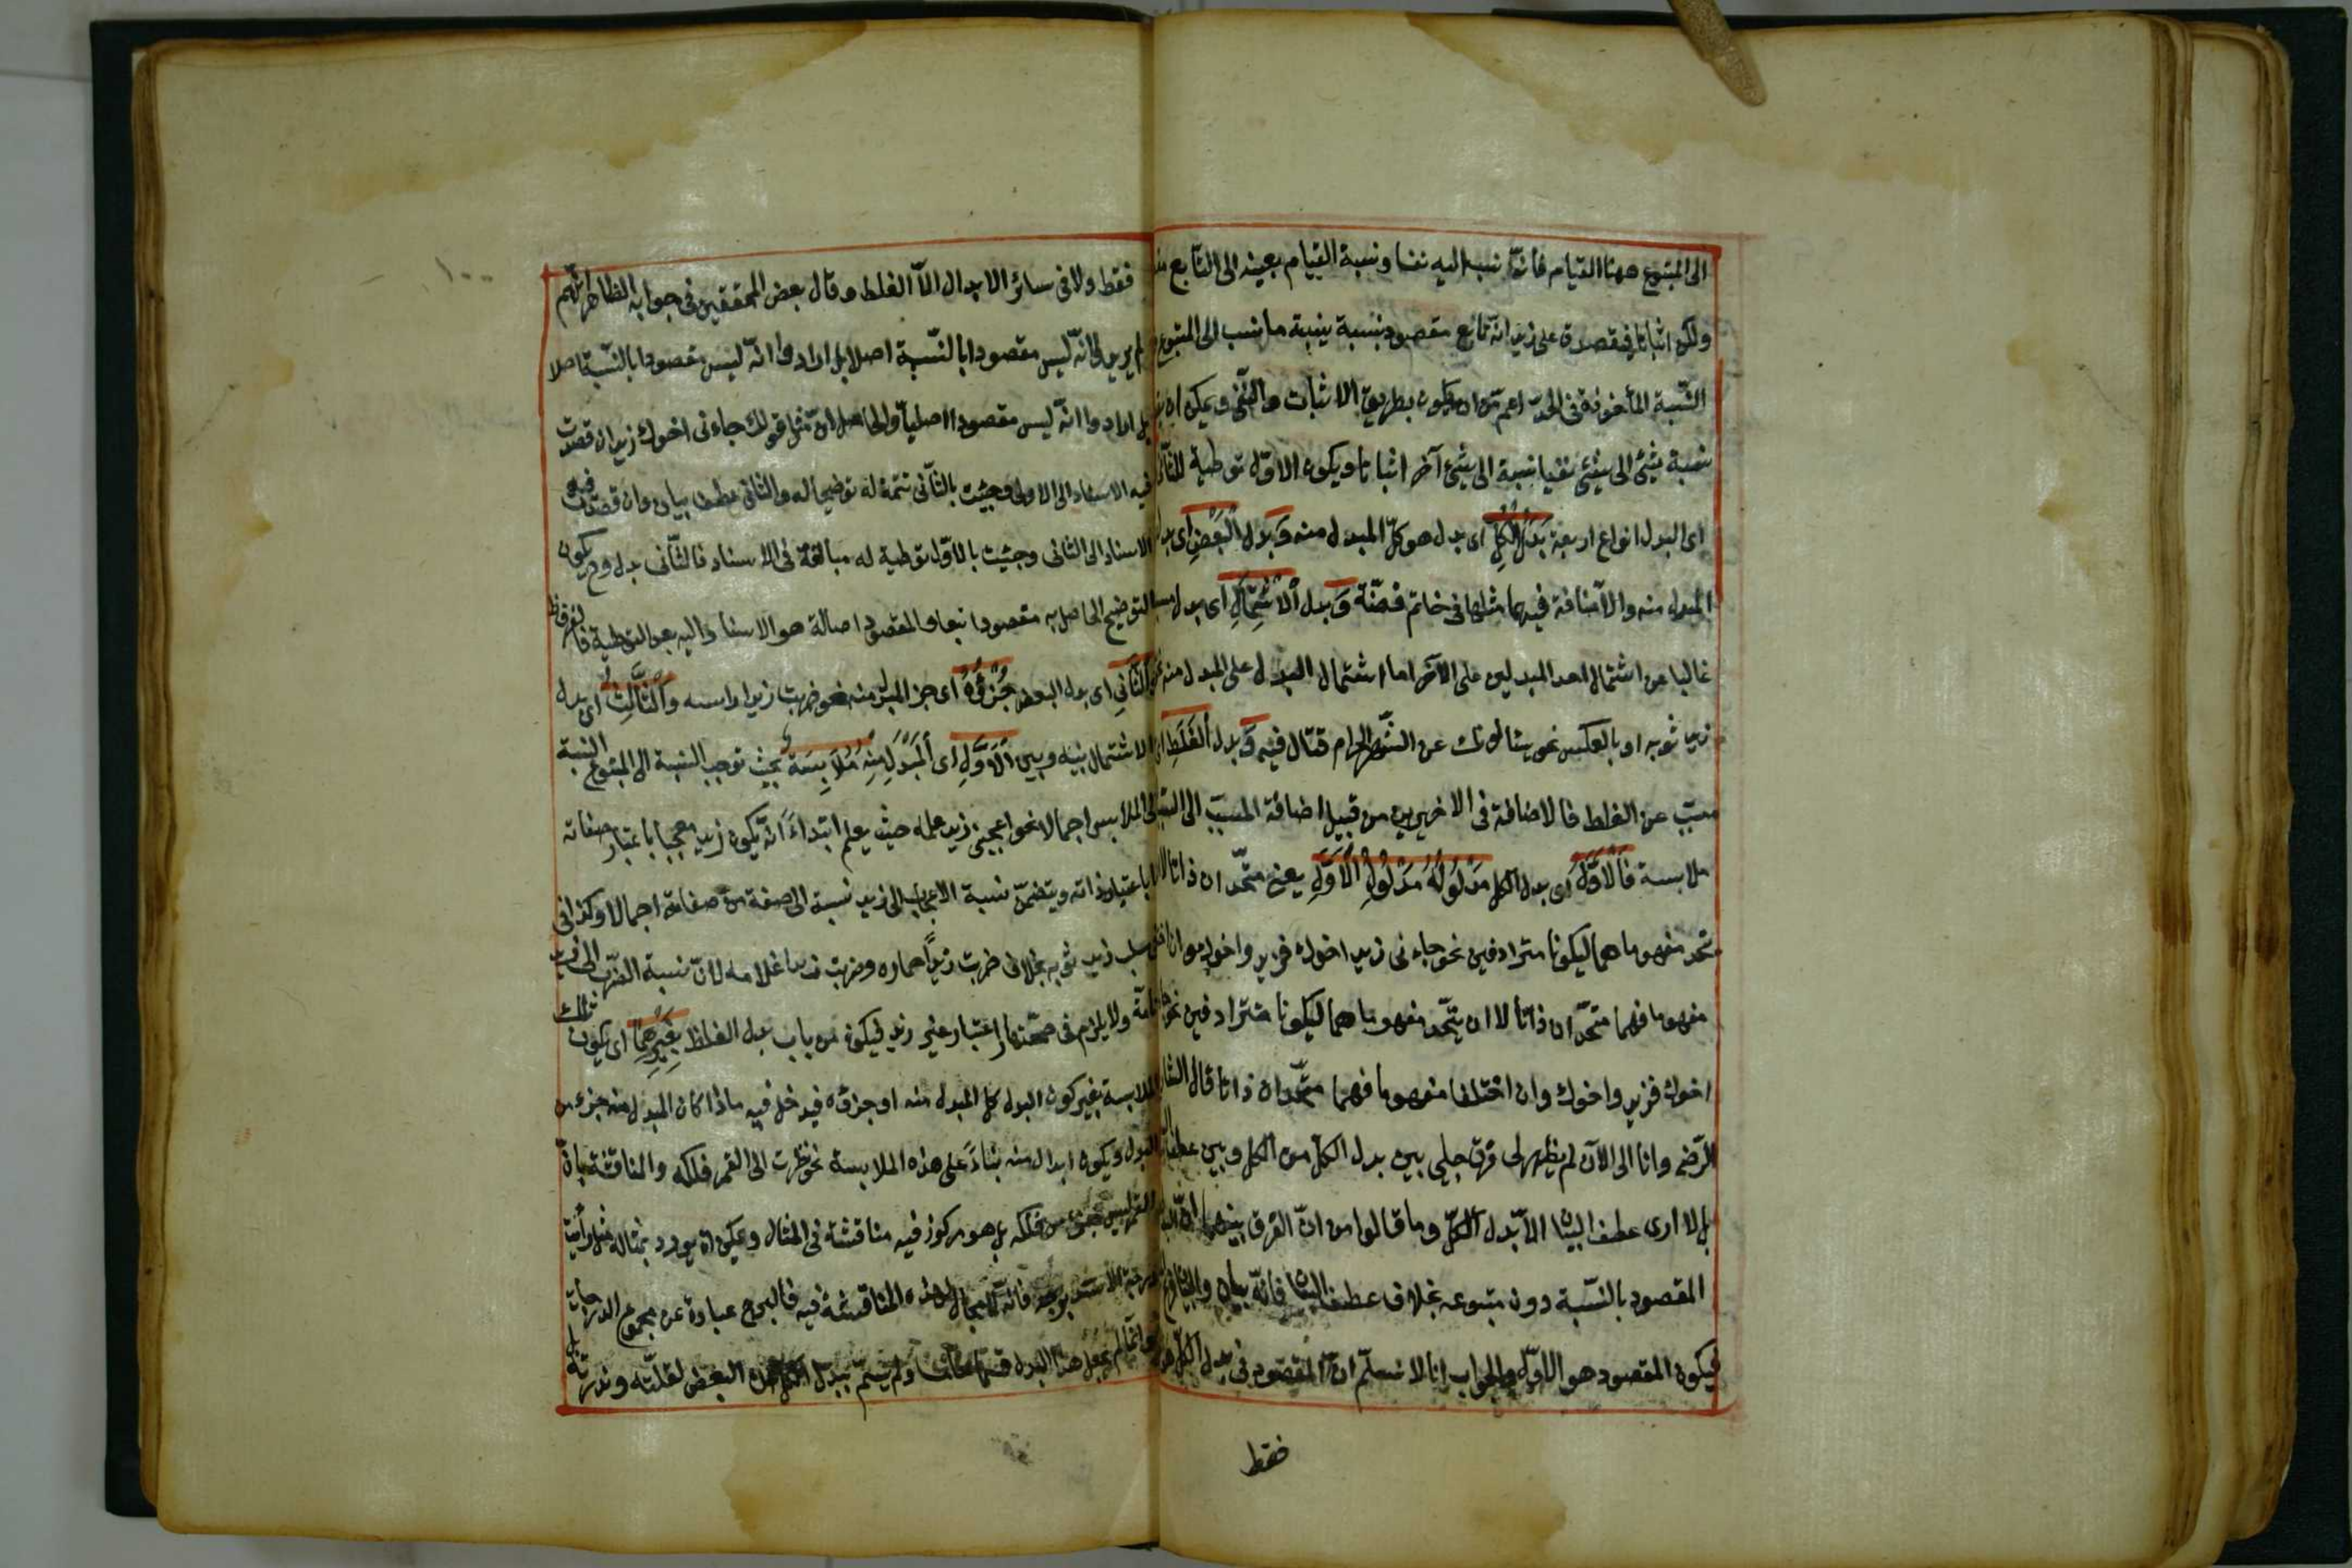 الى المتبوع ههنا القيام فانه نسب اليه نفيا ونسبة القيام بعينه الى التابع
ولكن اثباتا فيصدق على زيد انه تابع مقصود بنسبة ما نسب الى المتبوع
النسبة المأخوذة فى الحد اعم من ان يكون بطريق الاثبات والنفى ويمكن ان
نسبة شئ الى شئ نفيا نسبة الى شئ آخر اثباتا ويكون الاول توطية للثانى
اى البدل انواع اربعة بَدَلُ الْكُلِّ اى بدل هو كل المبدل منه وَبَدَل الْبَعْضِ اى بدل
المبدل منه والاضافة فيهما مثلها فى خاتم فضة وَبدل الْاشْتِمَالِ اى بدل
غالبا عن اشتمال احد المبدلين على الآخر اما اشتمال البدل على المبدل منه نحو
زيد ثوبه او بالعكس نحو يسألونك عن الشهر الحرام قتال فيه وَبدل الْغَلَطِ اى
مسبب عن الغلط فالاضافة فى الاخيرين من قبيل اضافة المسبب الى السبب
ملابسة فَالْاَوَّلُ اى بدل الكل مَدْلُولُهُ مَدْلُولُ الْاَوَّلِ يعنى متحدان ذاتا لا
يتحد مفهوماهما ليكونا مترادفين نحو جاءنى زيد اخوك فزيد واخوك وان
مفهوما فهما متحدان ذاتا لا ان يتحد مفهوماهما ليكونا مترادفين نحو
اخوك فزيد واخوك وان اختلفا مفهوما فهما متحدان ذاتا قال الشارح
الرضى وانا الى الآن لم يظهر لى فرق جلى بين بدل الكل من الكل وبين عطف
بل لا ارى عطف البيان الا بدل الكل وما قالوا من ان الفرق بينهما ان البدل
المقصود بالنسبة دون متبوعه بخلاف عطف البيان فانه بيان والبيان فرع
فيكون المقصود هو الاول والجواب انا لا نسلم ان المقصود فى بدل الكل هو
فقط
١٠٠
فقط ولا فى سائر الابدال الا الغلط وقال بعض المحققين فى جوابه الظاهر انهم
لم يريدوا انه ليس مقصودا بالنسبة اصلا بل ارادوا انه ليس مقصودا بالنسبة اصلا
بل ارادوا انه ليس مقصودا اصليا والحاصل ان مثل قولك جاءنى اخوك زيد ان قصدت
فيه الاسناد الى الاول وجئت بالثانى تتمة له توضيحا له فالثانى عطف بيان وان قصدت فيه
الاسناد الى الثانى وجئت بالاول توطية له مبالغة فى الاسناد فالثانى بدل وح يكون
التوضيح الحاصل به مقصودا تبعا والمقصود اصالة هو الاسناد اليه بعد التوطية فالفرق ظ
وَالثَّانِى اى بدل البعض جُزْؤُهُ اى جزء المبدل منه نحو ضربت زيدا راسه وَالثَّالِثُ اى بدل
الاشتمال بينه وبين الْاَوَّلِ اى الْمُبْدَلِ مِنْهِ مُلَابِسَةٌ بحيث توجب النسبة الى المتبوع النسبة
الى الملابس اجمالا نحو اعجبنى زيد علمه حيث يعلم ابتداءً انه يكون زيد معجبا باعتبار صفاته
لا باعتبار ذاته ويتضمن نسبة الاعجاب الى زيد نسبة الى صفة من صفاته اجمالا وكذا فى
سلب زيد ثوبه بخلاف ضربت زيداً حماره وضربت زيدا غلامه لان نسبة الضرب الى زيد
تامة ولا يلزم فى صحتها اعتبار غير زيد فيكون من باب بدل الغلط بِغَيْرِهِمَا اى يكون تلك
الملابسة بغير كون البدل كل المبدل منه او جزؤه فيدخل فيه ما اذا كان المبدل منه جزء من
البدل ويكون ابداله منه بناءً على هذه الملابسة نحو نظرت الى القمر فلكه والمناقشة بان
القمر ليس جزء من فلكه بل هو مركوز فيه مناقشة فى المثال ويمكن ان يورد بمثاله مثل رأيت
درجة الاسد برجه فانه لا مجال لهذه المناقشة فيه فالبرج عبارة عن مجموع الدرجات
وانما لم يجعل هذا البدل قسما خامسا ولم يسم ببدل الكل من البعض لقلته وندرته بل